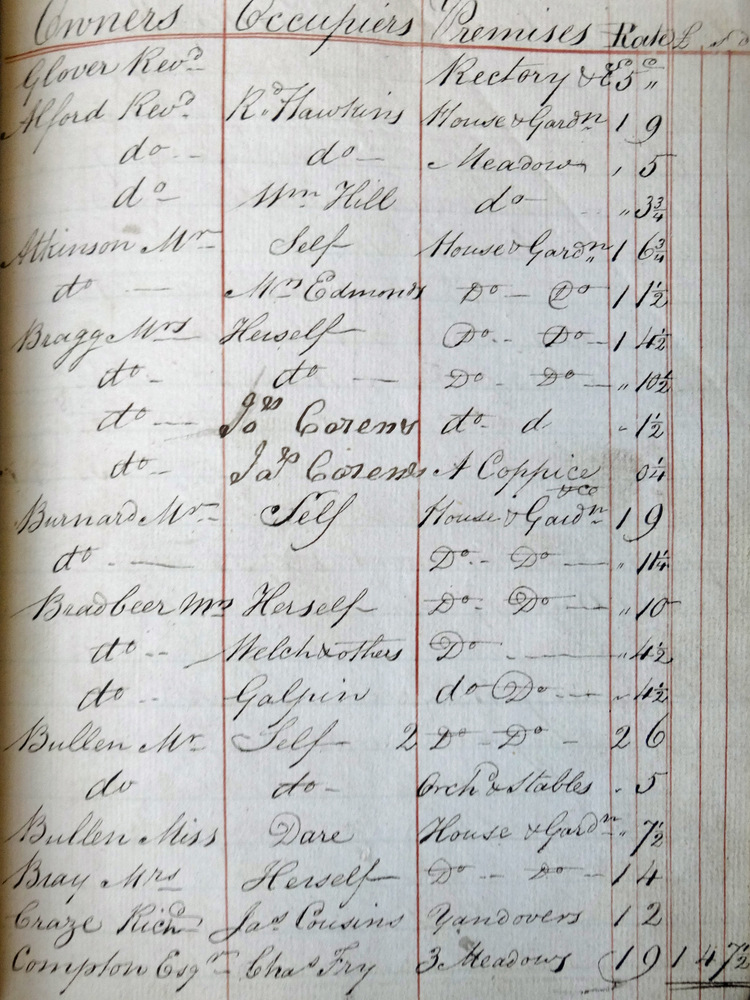 Owners Occupiers Premises Rate £ s d
Glover Revd. Rectory &c 5 "
Alford Revd. Rd. Hawkins House & Gardn 1 9
do do Meadow , 5
do Wm Hill do " 3¾
Atkinson Mr Self House & Gardn 1 6¾
do Mrs Edmonds Do Do 1 1½
Bragg Mrs Herself Do Do 1 4½
do do Do Do " 10½
do Jos Corens do d " 1½
do Jas Corens A Coppice &co 0¼
Burnard Mr Self House & Gardn 1 9
do Do Do " 11¼
Bradbeer Mrs Herself Do Do " 10
do Welch & others Do " 4½
do Galpin do Do " 4½
Bullen Mr Self 2 Do Do 2 6
do do Orchd & Stables " 5
Bullen Miss Dare House & Gardn " 7½
Bray Mrs Herself Do Do 1 4
Craze Richd Jas Cousins Yandovers 1 2
Compton Esqr Chas Fry 3 Meadows 1 9 1 4 7½